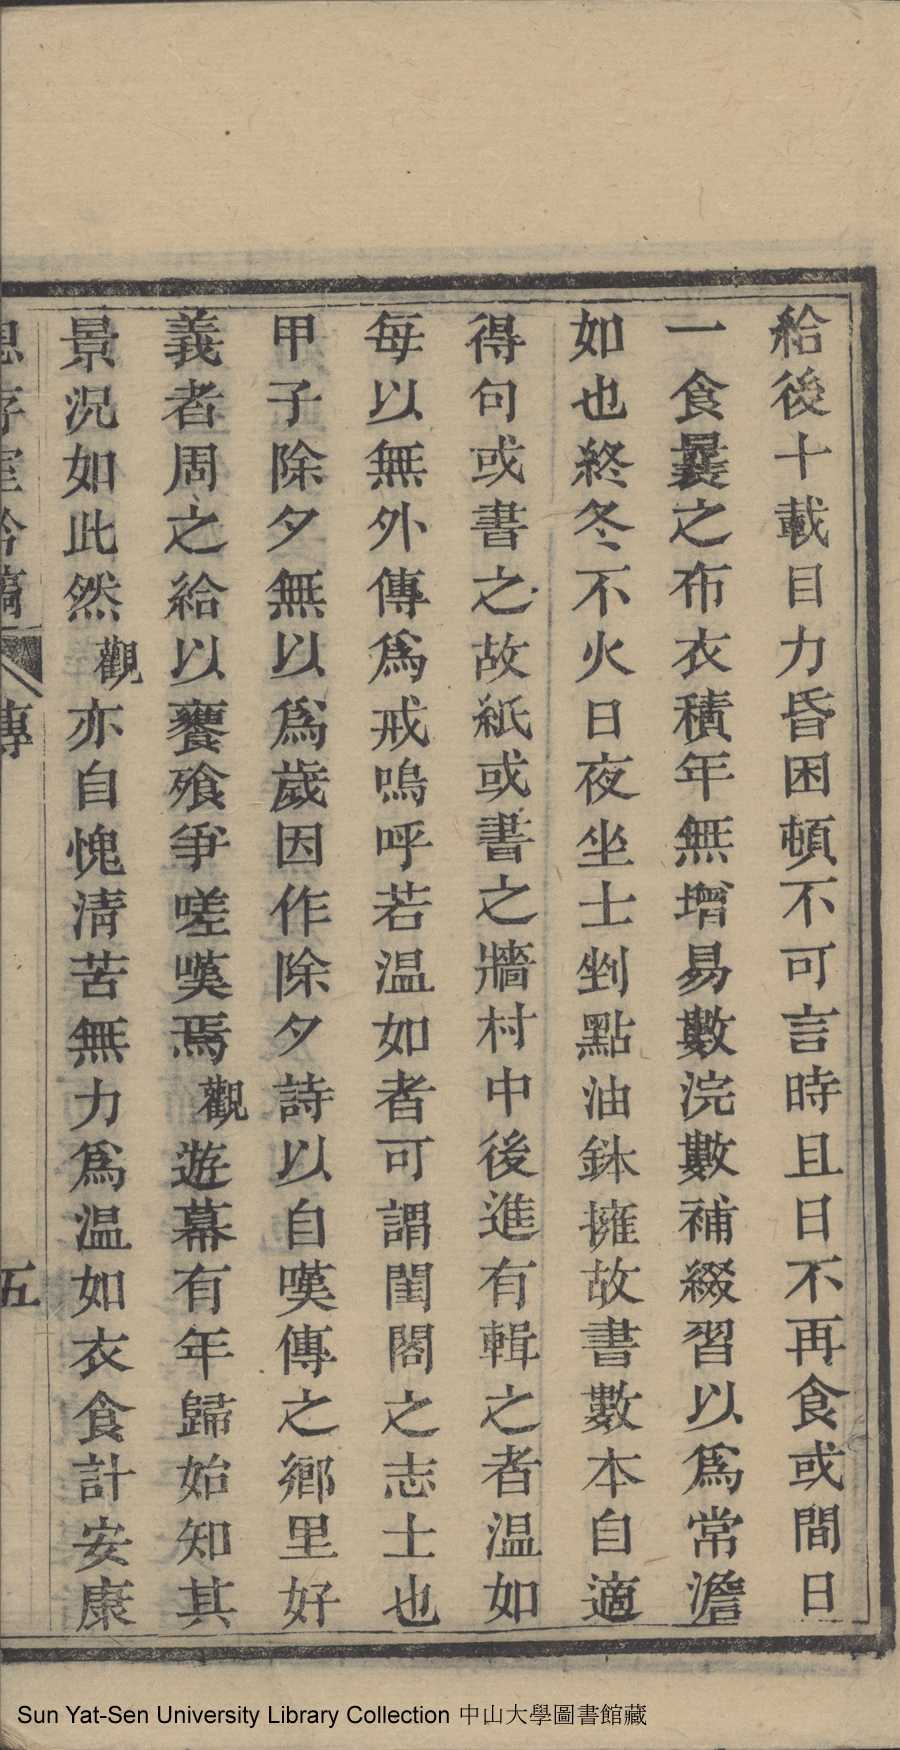 給後十載目力昏困頓不可言時且日不再食或間日
一食曩之布衣積年無增易數浣數補綴習以爲常澹
如也終冬不火日夜坐土剉點油鉢擁故書數本自適
得句或書之故紙或書之牆村中後進有輯之者温如
每以無外傳爲戒嗚呼若温如者可謂閨閣之志士也
甲子除夕無以爲歲因作除夕詩以自嘆傳之鄉里好
義者周之給以饔飧爭嗟嘆焉觀遊幕有年歸始知其
景況如此然觀亦自愧清苦無力爲温如衣食計安康
傳
五
Sun Yat-Sen University Library Collection 中山大學圖書館藏